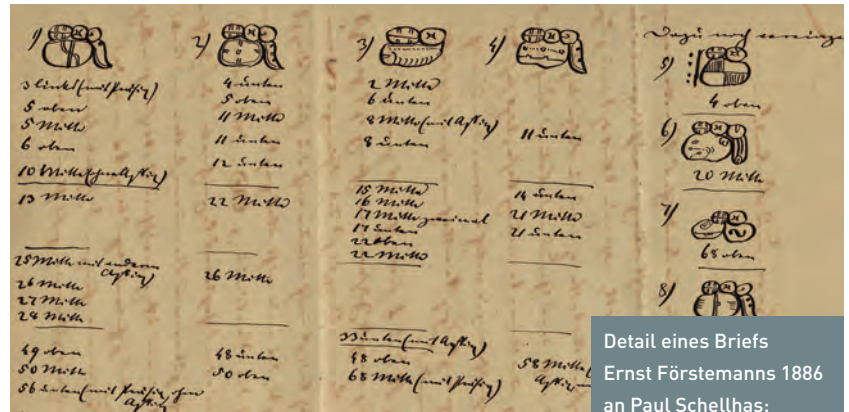 1)
3 links (mit Präfix)
5 oben
5 Mitte
6 oben
10 Mitte (ohne Affix)
13 Mitte
25 Mitte mit anderem
Affix)
26 Mitte
27 Mitte
28 Mitte
49 oben
50 Mitte
56 unten (mit Präfix, ohne
Affix)
2)
4 unten
5 oben
11 Mitte
11 unten
12 unten
22 Mitte
26 Mitte
48 unten
50 oben
3)
2 Mitte
6 unten
8 Mitte (mit Affix)
8 unten
15 Mitte
16 Mitte
17 Mitte zweimal
17 unten
22 oben
22 Mitte
33 unten (mit Affix)
48 oben
68 Mitte (mit Präfix)
4)
11 unten
14 unten
21 Mitte
21 unten
58 Mitte
Dazu noch
5)
4 oben
6)
20 Mitte
7)
68 oben
8)
Detail eines Briefs
Ernst Förstemanns 1886
an Paul Schellhas: